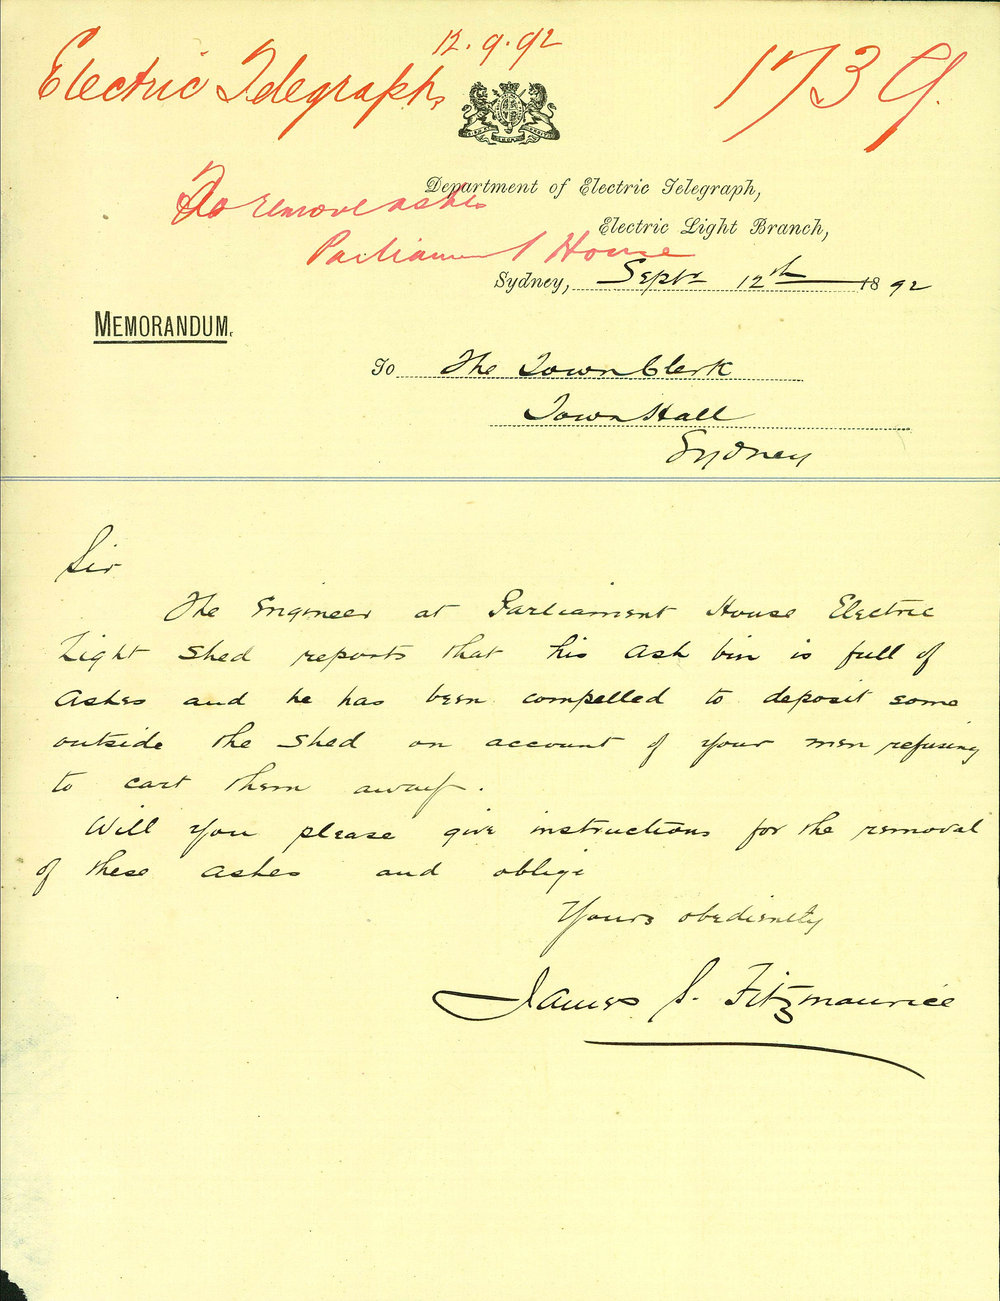 12.9.92
Electric Telegraph,
1739.
Department of Electric Telegraph,
To remove ashes
Electric Light Branch,
Parliament House
Sydney, Septr 12th 1892
MEMORANDUM.
To The Town Clerk
Town Hall
Sydney
Sir
The Engineer at Parliament House Electric
Light Shed reports that his ash bin is full of
ashes and he has been compelled to deposit some
outside the shed on account of your men refusing
to cart them away.
Will you please give instructions for the removal
of these ashes and oblige
Yours obediently
James S. Fitzmaurice